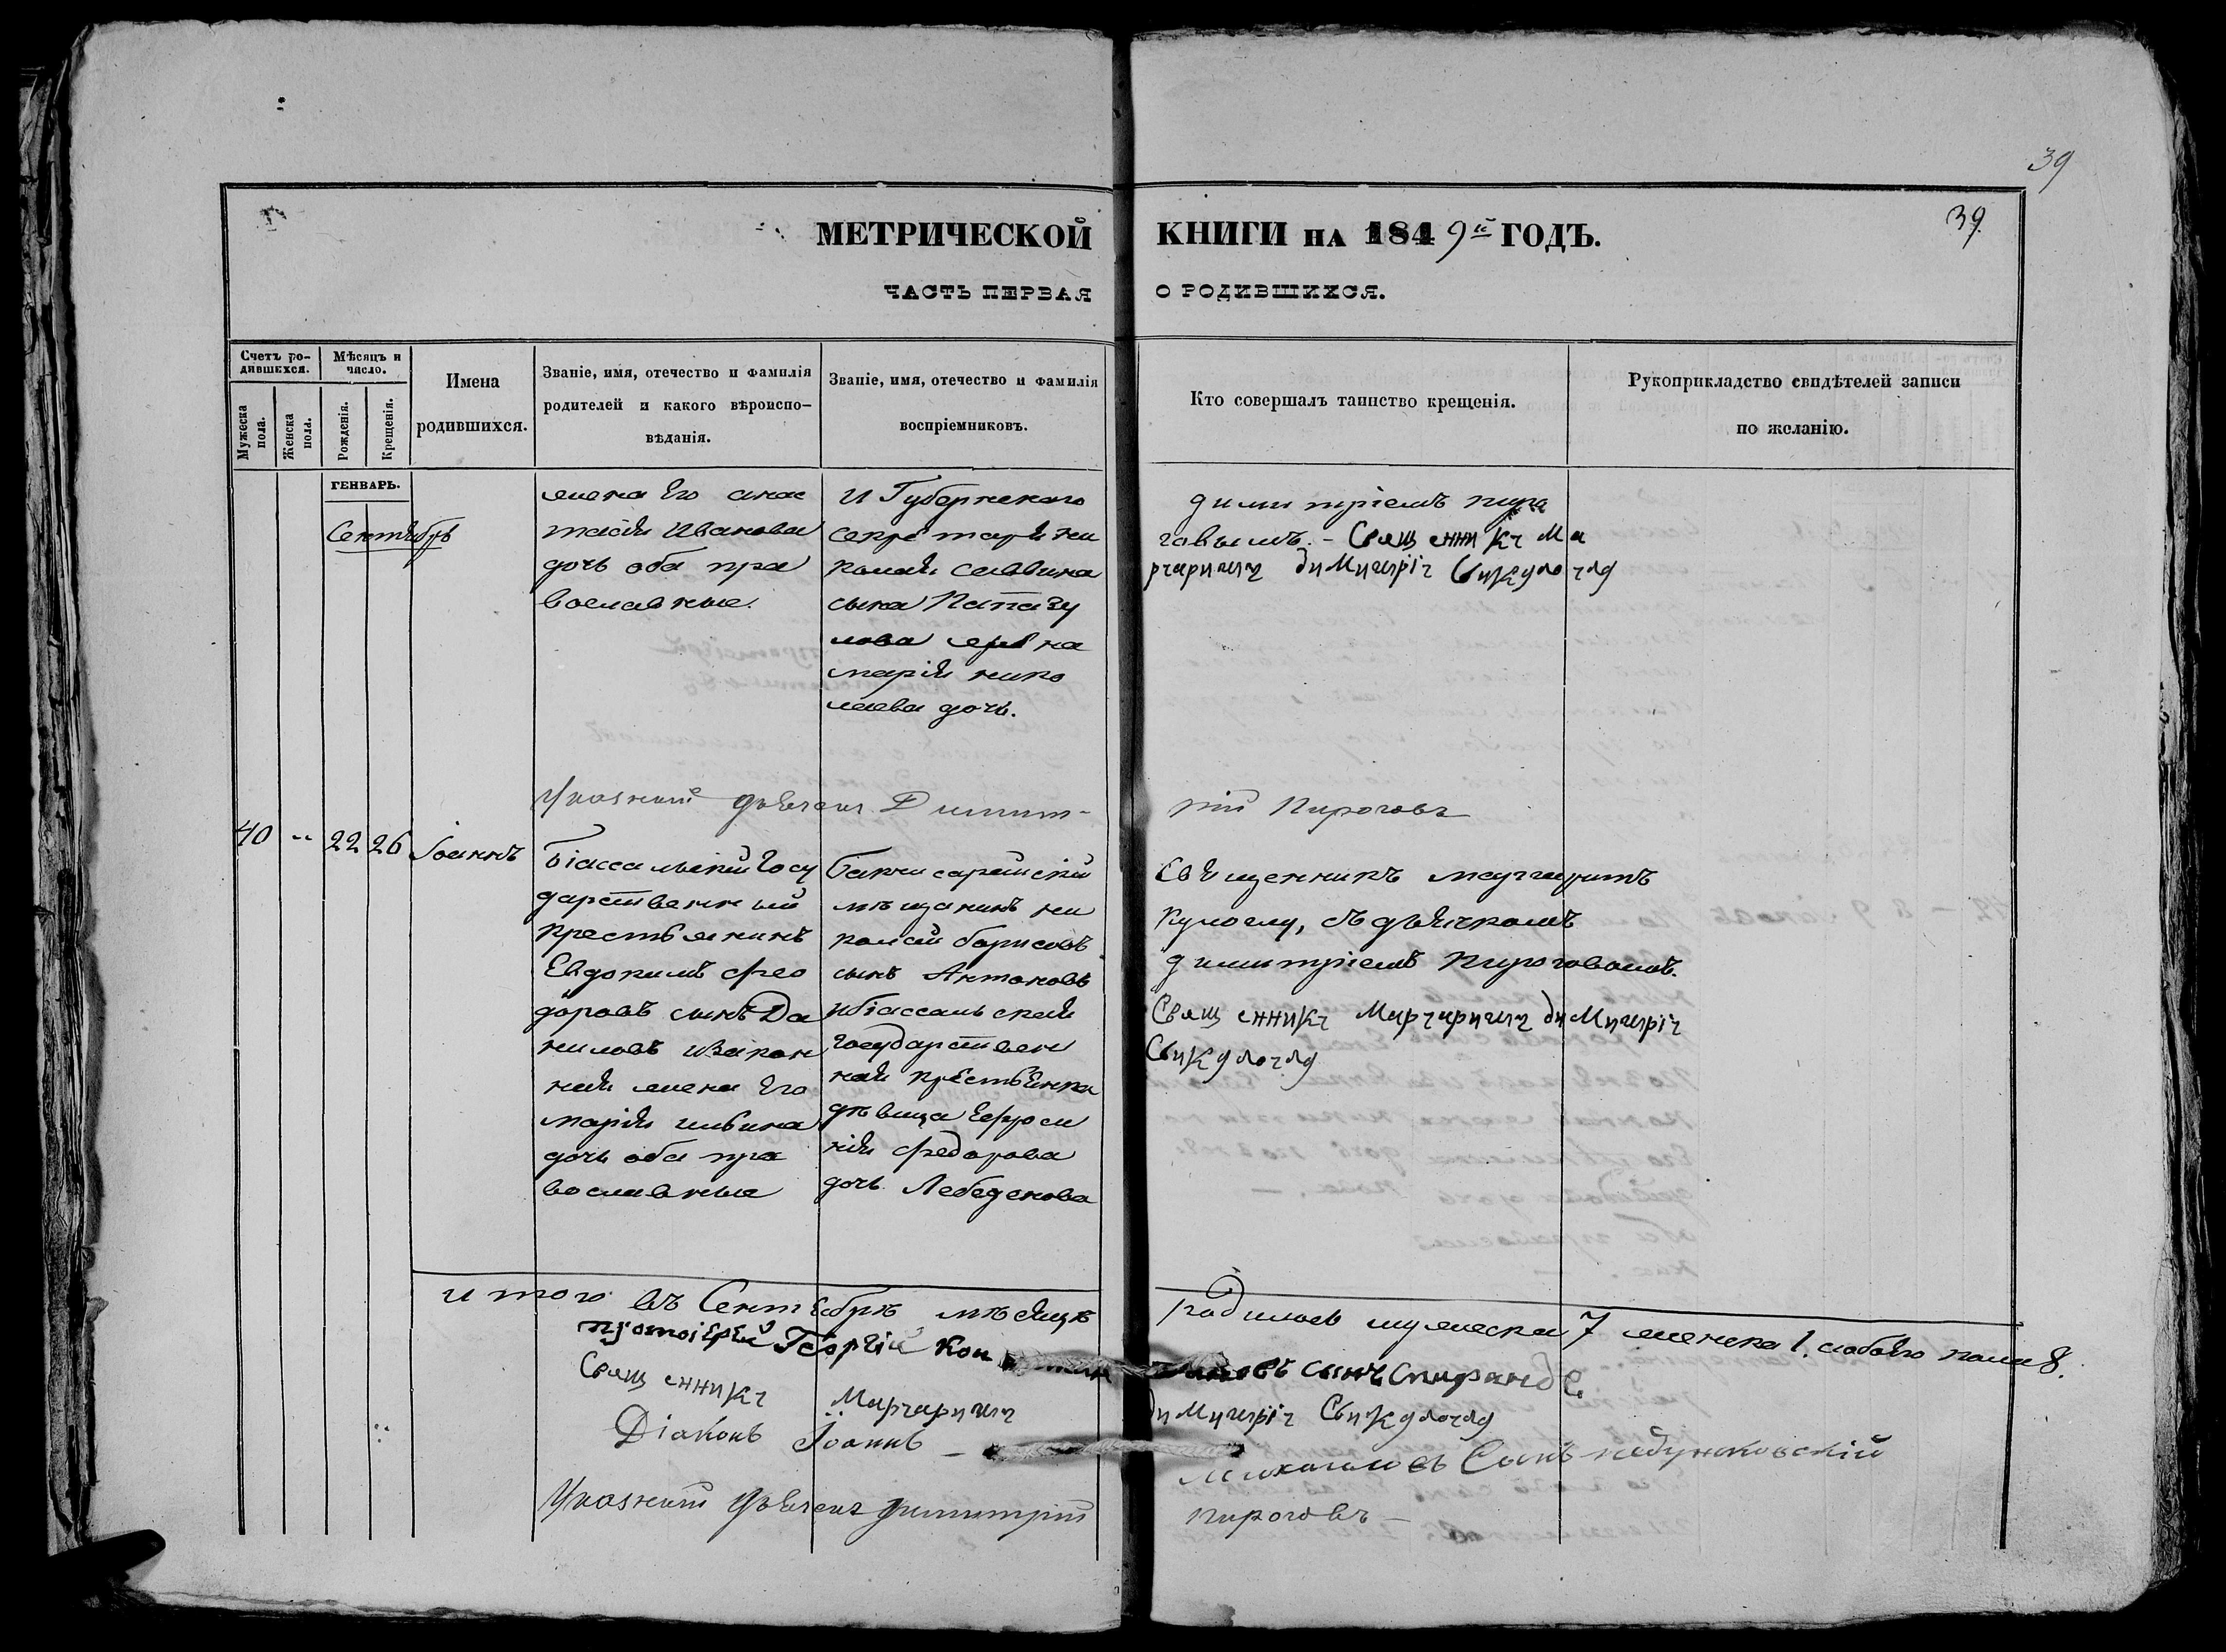 39
МЕТРИЧЕСКОЙ КНИГИ НА 1849й ГОДЪ.
39
ЧАСТЬ ПЕРВАЯ О РОДИВШИХСЯ.
Счетъ ро-
дившихся.
Мѣсяцъ и
число.
Мужеска
пола.
Женска
пола.
Рожденія.
Крещенія.
Имена
родившихся.
Званіе, имя, отечество и фамилія
родителей и какого вѣроиспо-
вѣданія.
Званіе, имя, отечество и фамилія
воспріемниковъ.
Кто совершалъ таинство крещенія.
Рукоприкладство свидѣтелей записи
по желанію.
ГЕНВАРЬ.
Сентябрь
жена Его анас
тасія Иванова
дочь оба пра
вославные.
и Губернскаго
секре таря ни
колая саввина
сына
лова жена
марія нико
лаева дочь.
димитріемъ пиро
говымъ. - Священникъ Ма
ргаритъ димитрій
Указный дьячекъ Димит-
рій Пироговъ
40 " 22 26 Іоаннъ
Біассальскій Госу
дарственный
крестьянинъ
Евдокимъ фео
доровъ сынъ Да
ниловъ изакон
ная жена Его
марія
дочь оба пра
вославные
бакчисарайскій
мѣщанинъ ни
колай борисовъ
сынъ Антоновъ
ибіассальская
государствен
ная крестьянка
дѣвица Ефроси
нія федорова
дочь Лебеденкова
Священникъ маргаритъ
кулоглу, съ дьячкомъ
димитріемъ пироговомъ.
Священникъ Маргаритъ димитрій
итого въ Сентябрѣ мѣсяцѣ родилось мужеска 7 женска 1. обоего пола 8.
протоіерей Георгій сынъ Спиранде
Священникъ Маргаритъ димитрій
Діаконъ Іоаннъ — Михаиловъ Сынъ
Указный дьячекъ димитрій пироговъ —